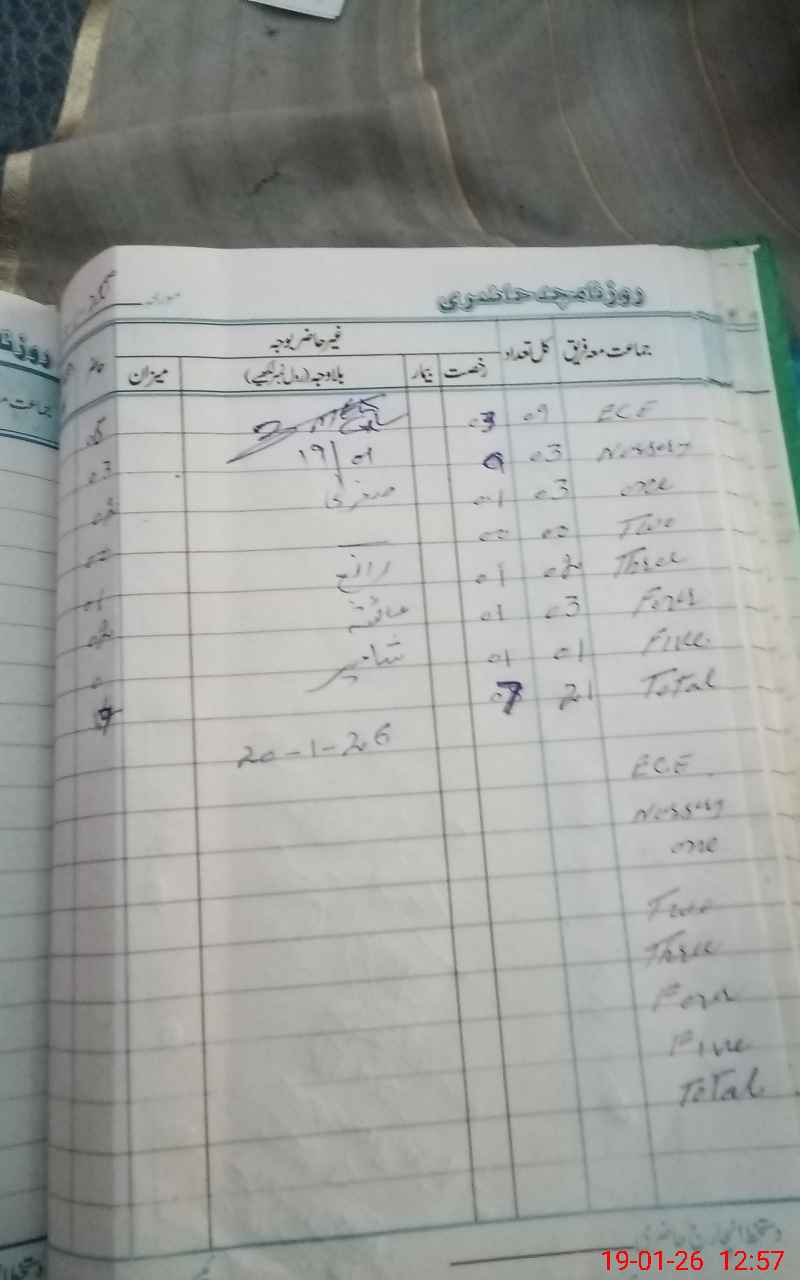 روزنامچہ حاضری
جماعت معہ فریق کل تعداد غیر حاضر بوجہ حاضر
رخصت بیمار بلاوجہ (رول نمبر لکھیے) میزان
ECE 09 03
Nursery 03 0 19/01 03
one 03 01 صغریٰ 02
Two 00 00 — 00
Three 02 01 01
Four 03 01 عائشہ 02
Five 01 01 0
Total 21 07
20-1-26
ECE
Nursery
one
Two
Three
Four
Five
Total
19-01-26 12:57